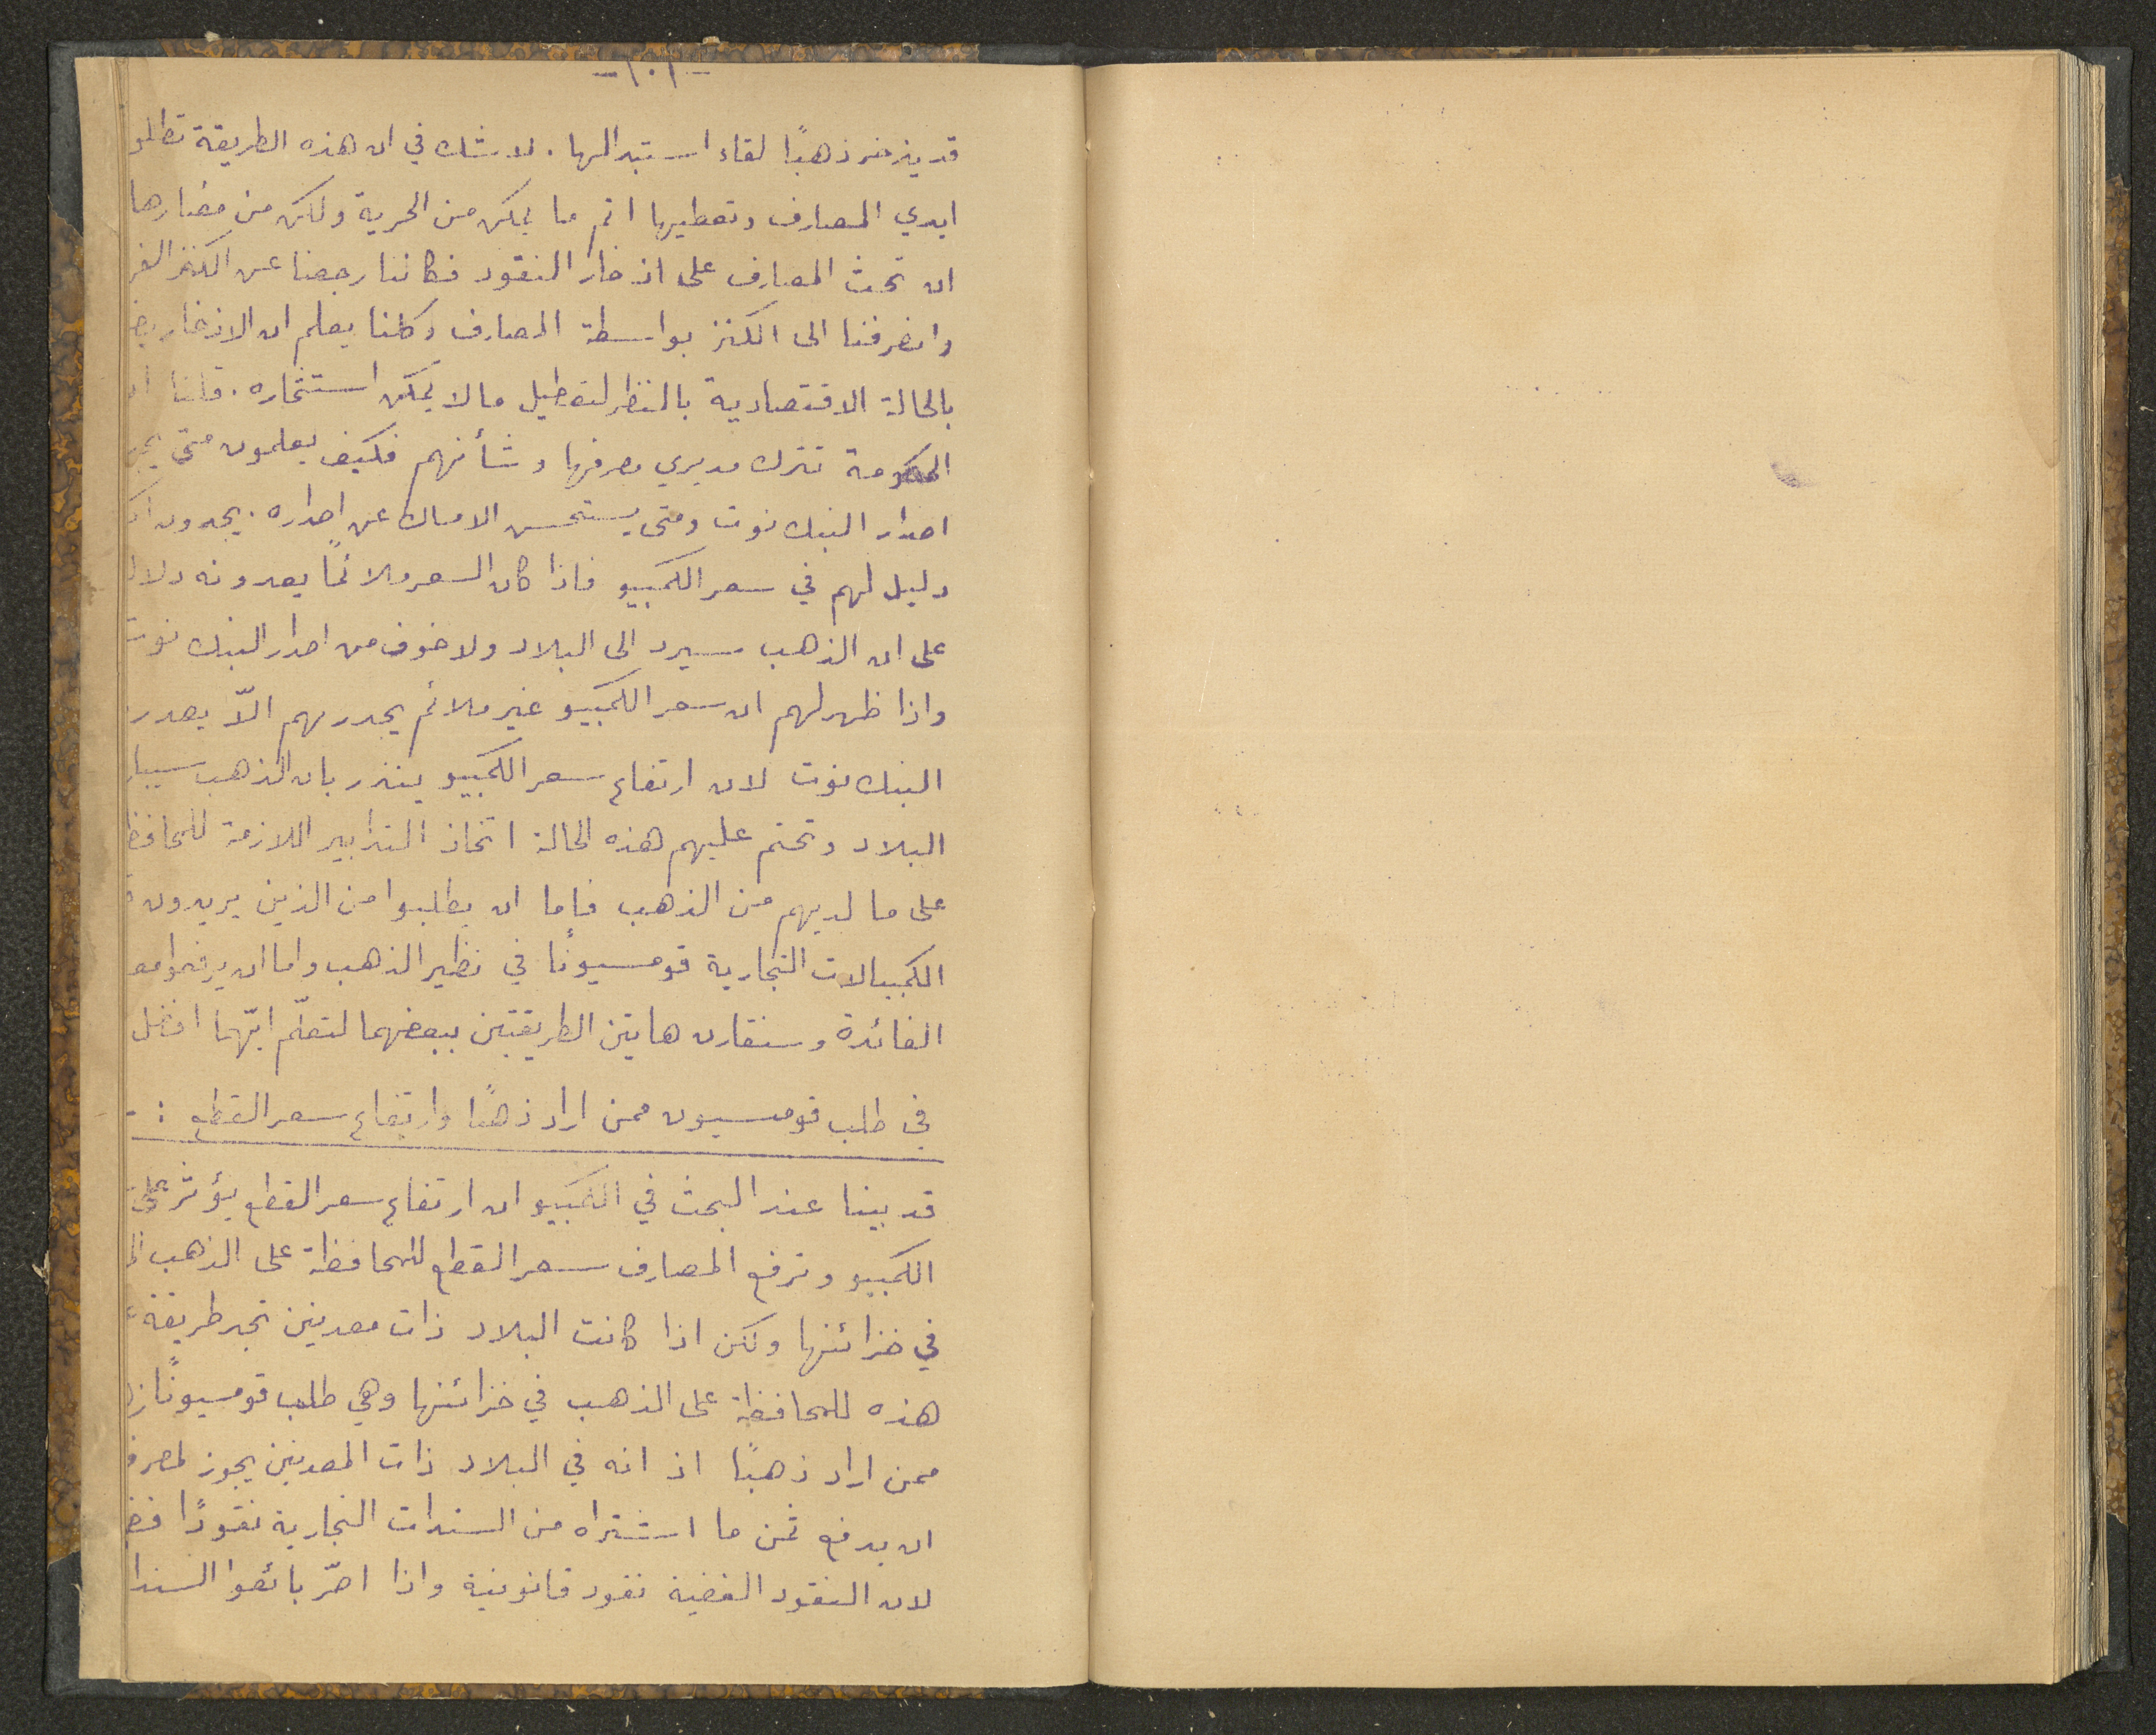 -١٠١-
قد يذخر ذهبًا لقاء استبدالها. لا شك في ان هذه الطريقة تطلق
ايدي المصارف وتعطيها اتم ما يمكن من الحرية ولكن من مضارها
ان تحث المصارف على اذخار النقود فكاننا رجعنا عن الكنز الفر
وانصرفنا الى الكنز بواسطة المصارف وكلنا يعلم ان الاذخار يضر
بالحالة الاقتصادية بالنظر لتعطيل ما لا يمكن استثماره. قلنا ان
الحكومة تترك مديري مصرفها وشأنهم فكيف يعلمون متى يجب
اصدار البنك نوت ومتى يستحسن الامساك عن اصداره. يجدون اكبر
دليل لهم في سعر الكمبيو فاذا كان السعر ملائمًا يعدونه دلالة
على ان الذهب سيرد الى البلاد ولا خوف من اصدار البنك نوت
واذا ظهر لهم ان سعر الكمبيو غير ملائم يجدر بهم الّا يصدروا
البنك نوت لان ارتفاع سعر الكمبيو ينذر بان الذهب سيبارح
البلاد وتحتم عليهم هذه الحالة اتخاذ التدابير اللازمة للمحافظة
على ما لديهم من الذهب فاما ان يطلبوا من الذين يريدون
الكمبيالات التجارية قومسيونًا في نظير الذهب واما ان يرفعوا معدل
الفائدة وسنقارن هاتين الطريقتين ببعضهما لنعلّم ايّهما افضل
في طلب قومسيون ممن اراد ذهبًا وارتفاع سعر القطع :-
قد بينا عند البحث في الكمبيو ان ارتفاع سعر القطع يؤثر على
الكمبيو وترفع المصارف سعر القطع للمحافظة على الذهب الذي
في خزائنها ولكن اذا كانت البلاد ذات معدنين تجد طريقة غير
هذه للمحافظة على الذهب في خزائنها وهي طلب قومسيونًا زهيدًا
ممن اراد ذهبًا اذ انه في البلاد ذات المعدنين يجوز لمصرف
ان يدفع ثمن ما اشتراه من السندات التجارية نقودًا فضية
لان النقود الفضية نقود قانونية واذا اصرّ بائعوا السندات